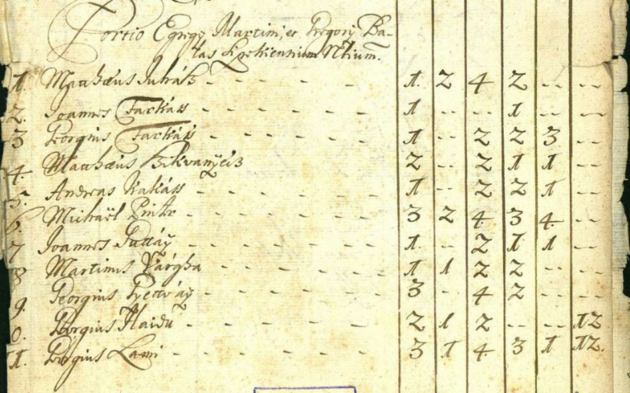 Portio Egreg. Martini, et Gregory Ba-
tas Nobilium.
1. Matthæus Juhasz - - - - 1. 2 4 2 - - - -
2. Joannes Farkass - - - - 1 - - - - 1 - - - -
3 Georgius Farkass - - - - 1 - - 2 2 3 - -
4. Matthæus - - - - 2 - - 2 1 1 - -
5. Andreas Kakass - - - - 1 - - 2 2 1 - -
6. Michaël Pinter - - - - 3 2 4 3 4 - -
7 Joannes - - - - 1. - - 2 1 1 - -
8 Martinus Vargha - - - - 1 1 2 2 - - - -
9. Georgius - - - - 3 - - 4 2 - - - -
0. Georgius Haidu - - - - 2 1 2 - - - - 12
11. Georgius Lami - - - - 3 1 4 3 1 12.